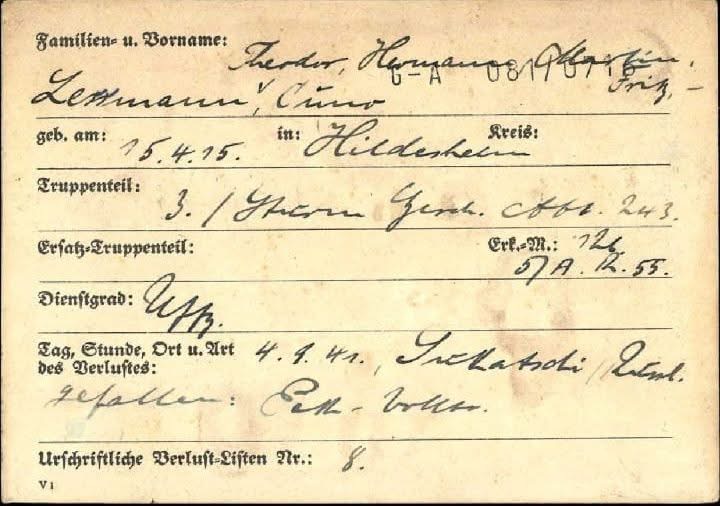 Familien- u. Vorname:
Theodor, Hermann, Martin,
G-A 081/0718
Fritz, -
Lekmann, Cuno
geb. am: 15.4.15. in: Hildesheim Kreis:
Truppenteil: 3. / Sturm Gesch. Abt. 243.
Ersatz-Truppenteil: Erk.-M.: 126
57 A. R. 55.
Dienstgrad: Uffz.
Tag, Stunde, Ort u. Art 4. 9. 41,
des Verlustes:
gefallen:
Urschriftliche Verlust-Listen Nr.: 8.
V 1